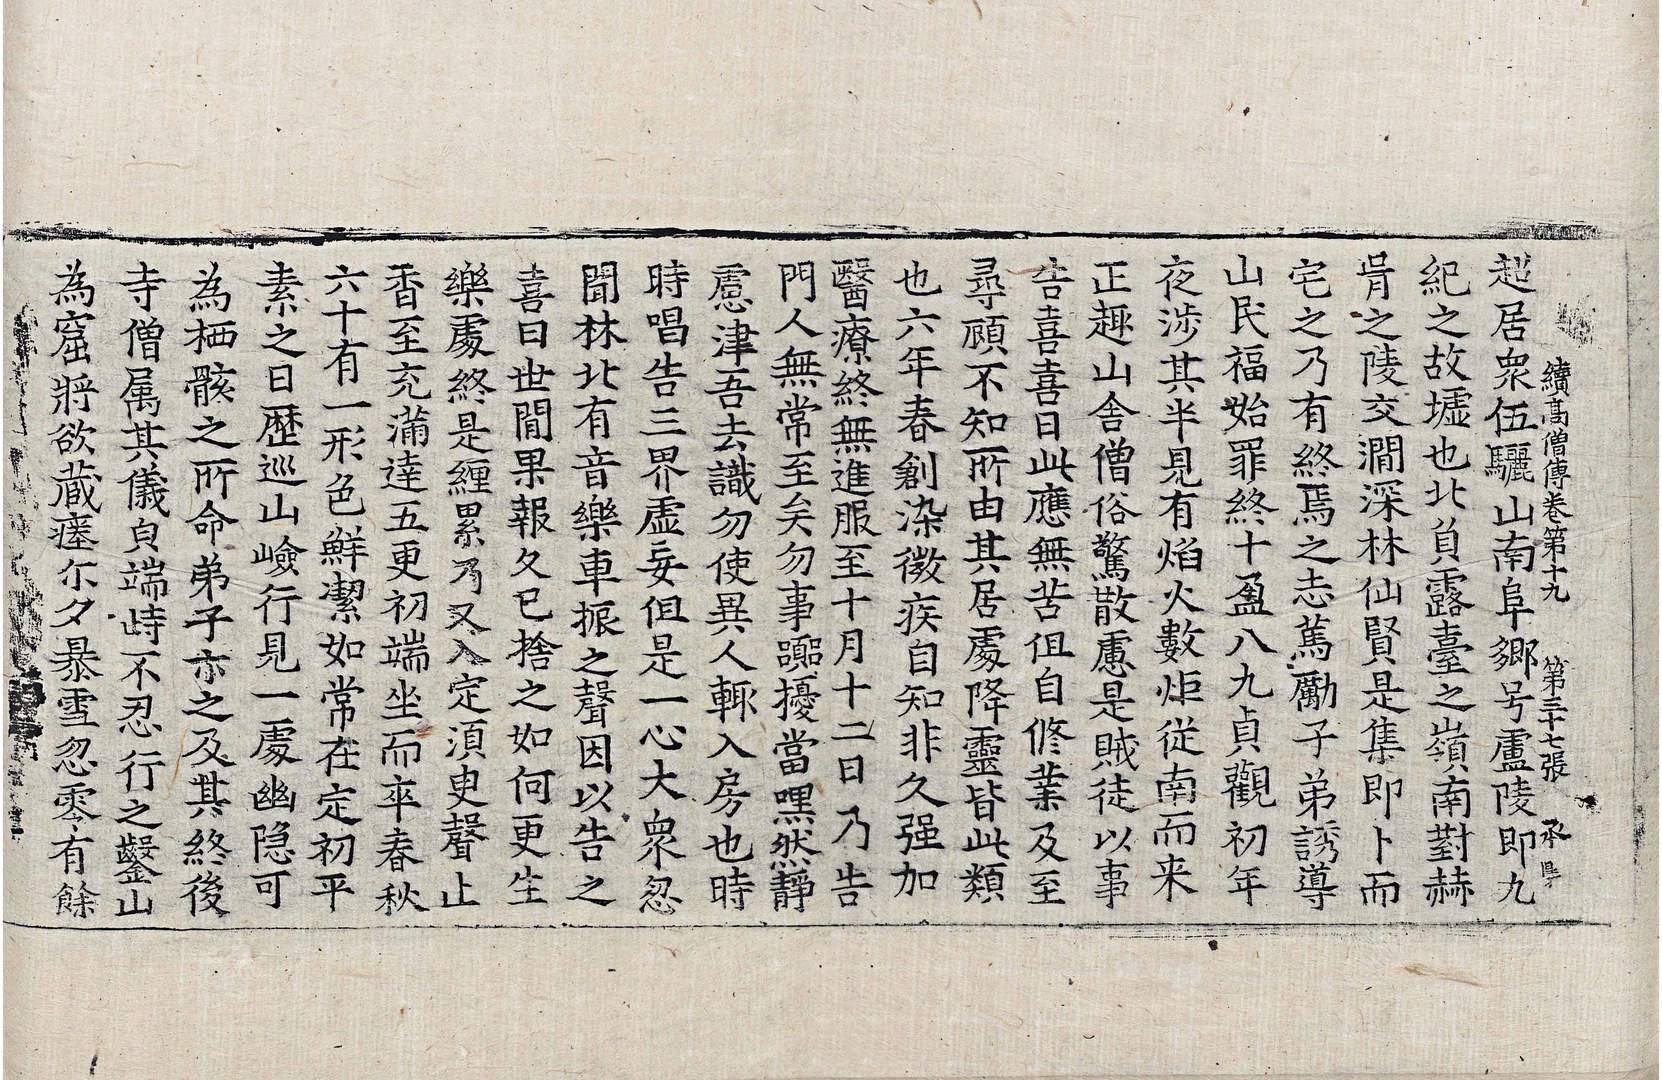 續高僧傳卷第十九　第三十七張　承
起居眾伍驪山南阜鄉号盧陵即九
紀之故墟也北負露臺之嶺南對赫
胥之陵交澗深林仙賢是集即卜而
宅之乃有終焉之志篤勵子弟誘導
山民福始罪終十盈八九貞觀初年
夜涉其半見有焰火數炬從南而来
正趣山舍僧俗驚散慮是賊徒以事
告喜喜曰此應無苦但自脩業及至
尋顧不知所由其居處降靈皆此類
也六年春創染微疾自知非久强加
醫療終無進服至十月十二日乃告
門人無常至矣勿事囂擾當嘿然靜
慮津吾去識勿使異人輒入房也時
時唱告三界虛妄但是一心大眾忽
聞林北有音樂車振之聲因以告之
喜曰世間果報久已捨之如何更生
樂處終是纏累乃又入定須臾聲止
香至充滿達五更初端坐而卒春秋
六十有一形色鮮潔如常在定初平
素之日歷巡山嶮行見一處幽隐可
為栖骸之所命弟子亦之及其終後
寺僧属其儀貞端峙不忍行之鑿山
為窟將欲藏瘞尒夕暴雪忽零有餘